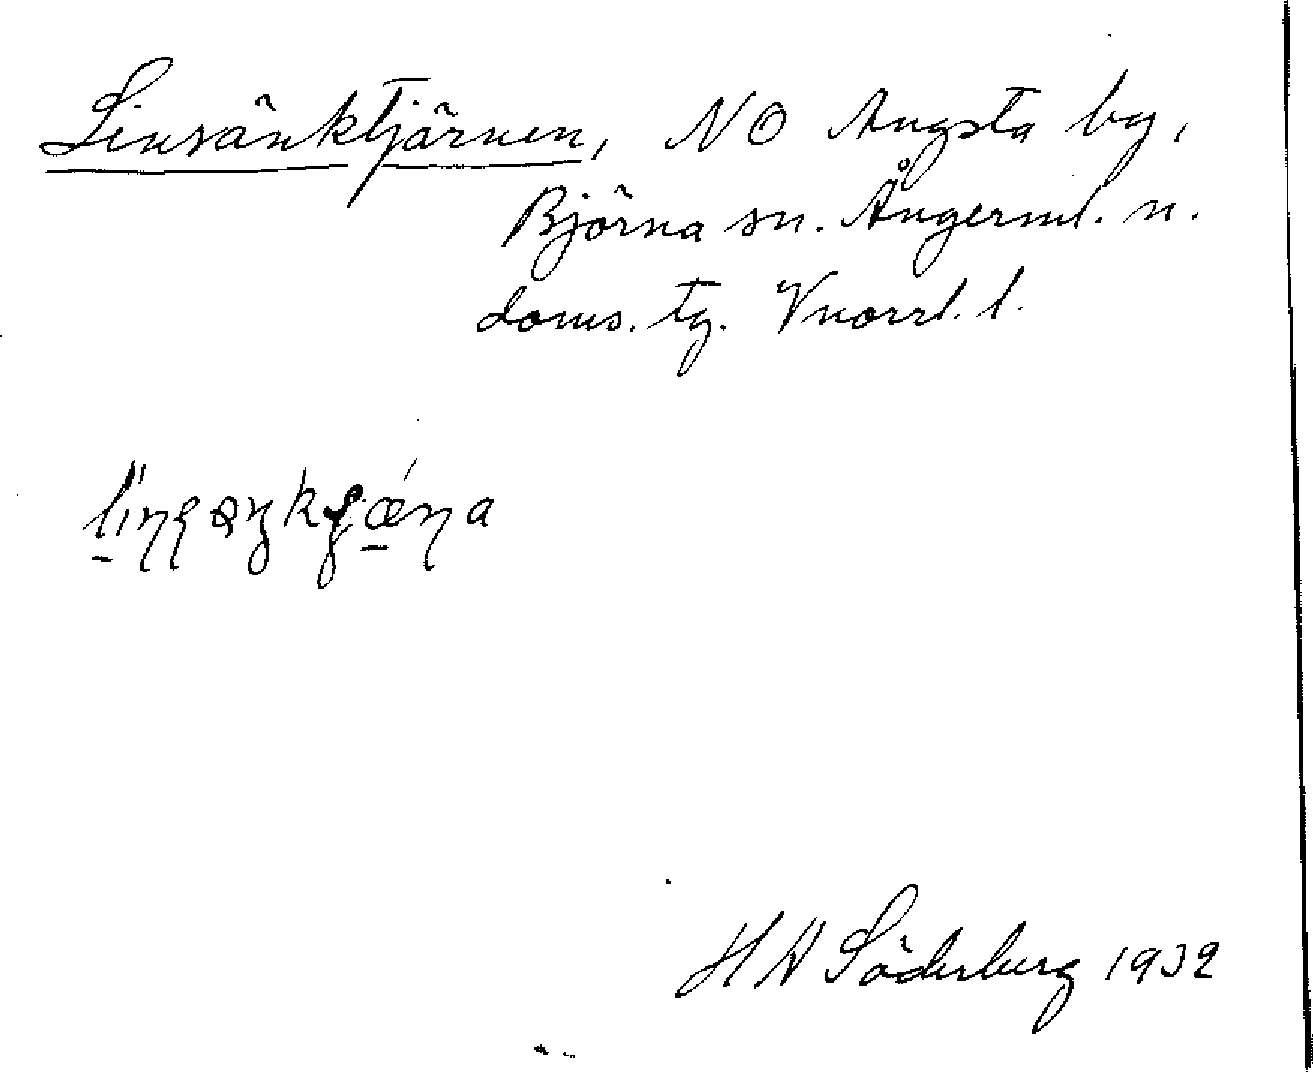 Linsänktjärnen, NO Angsta by,
Björna sn. Ångerml. n.
doms. tg. Vnorrl. l.
H A Söderberg 1932